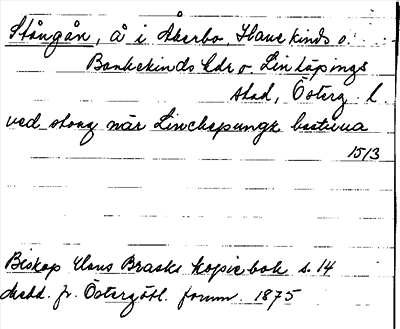 Stångån, å i Åkerbo, Hanekinds o
Bankekinds hdr o Linköpings
stad, Österg l.
ved stong när Linchepungx
1513
Biskop Hans Brasks kopiebok s. 14
Östergötl. fornm. 1875